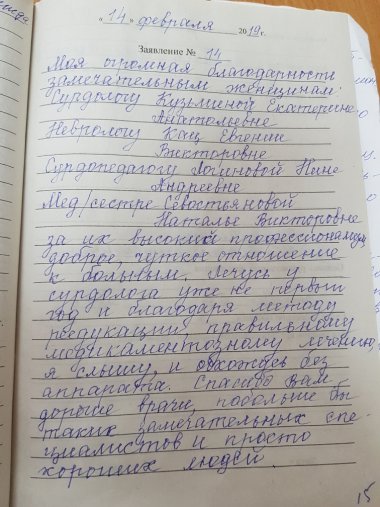 "14" февраля 2019 г.
Заявление № 14
Моя огромная благодарность
замечательным женщинам:
Сурдологу Кузьминой Екатерине
Анатольевне
Неврологу Кац Евгении
Викторовне
Сурдопедагогу Логиновой Нине
Андреевне
Мед/сестре Севастьяновой
Наталье Викторовне
за их высокий профессионализм,
доброе, чуткое отношение
к больным. Лечусь у
сурдолога уже не первый
год и благодаря методу
редукации, правильному
медикаментозному лечению,
я слышу, и обхожусь без
аппарата. Спасибо Вам
дорогие врачи, побольше бы
таких замечательных спе-
циалистов и просто
хороших людей.
15